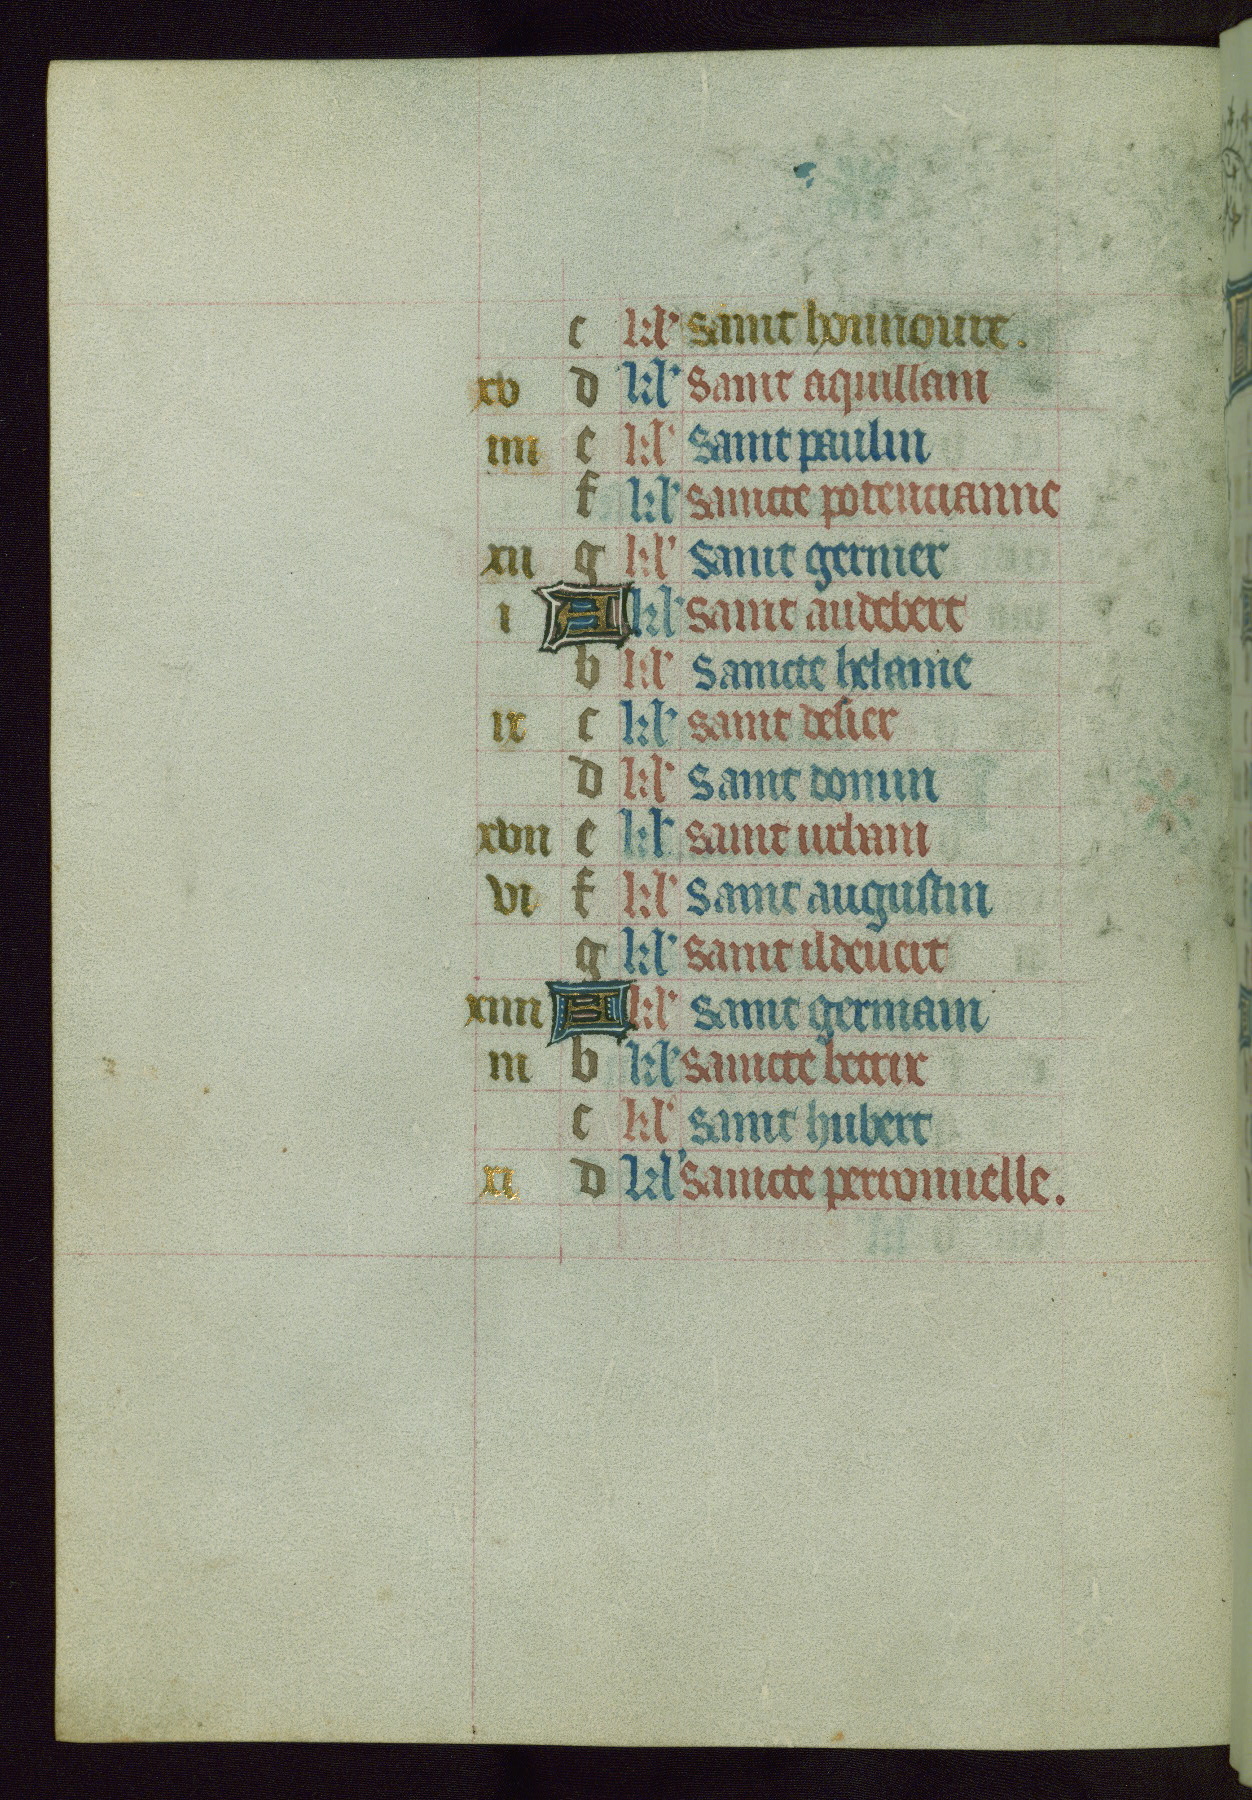 c kl' saint honnoure.
xv d kl' saint aquillain
iiii e kl' saint paulin
f kl' saincte potencianne
xii g kl' saint gernier
i A kl' saint audebert
b kl' saincte helaine
ix c kl' saint desier
d kl' saint donun
xvii e kl' saint urbain
vi f kl' saint augustin
g kl' saint ildevert
xiiii A kl' saint germain
iii b kl' saincte betrix
c kl' saint hubert
xi d kl' saincte perronnelle.